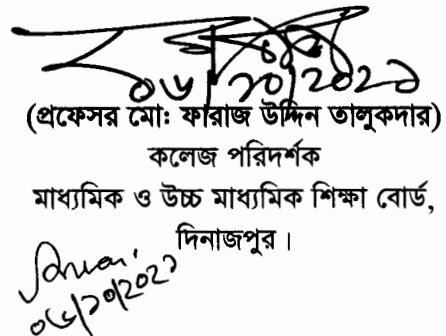 ০৬/১০/২০২১
(প্রফেসর মোঃ ফারাজ উদ্দিন তালুকদার)
কলেজ পরিদর্শক
মাধ্যমিক ও উচ্চ মাধ্যমিক শিক্ষা বোর্ড,
দিনাজপুর।
০৬/১০/২০২১